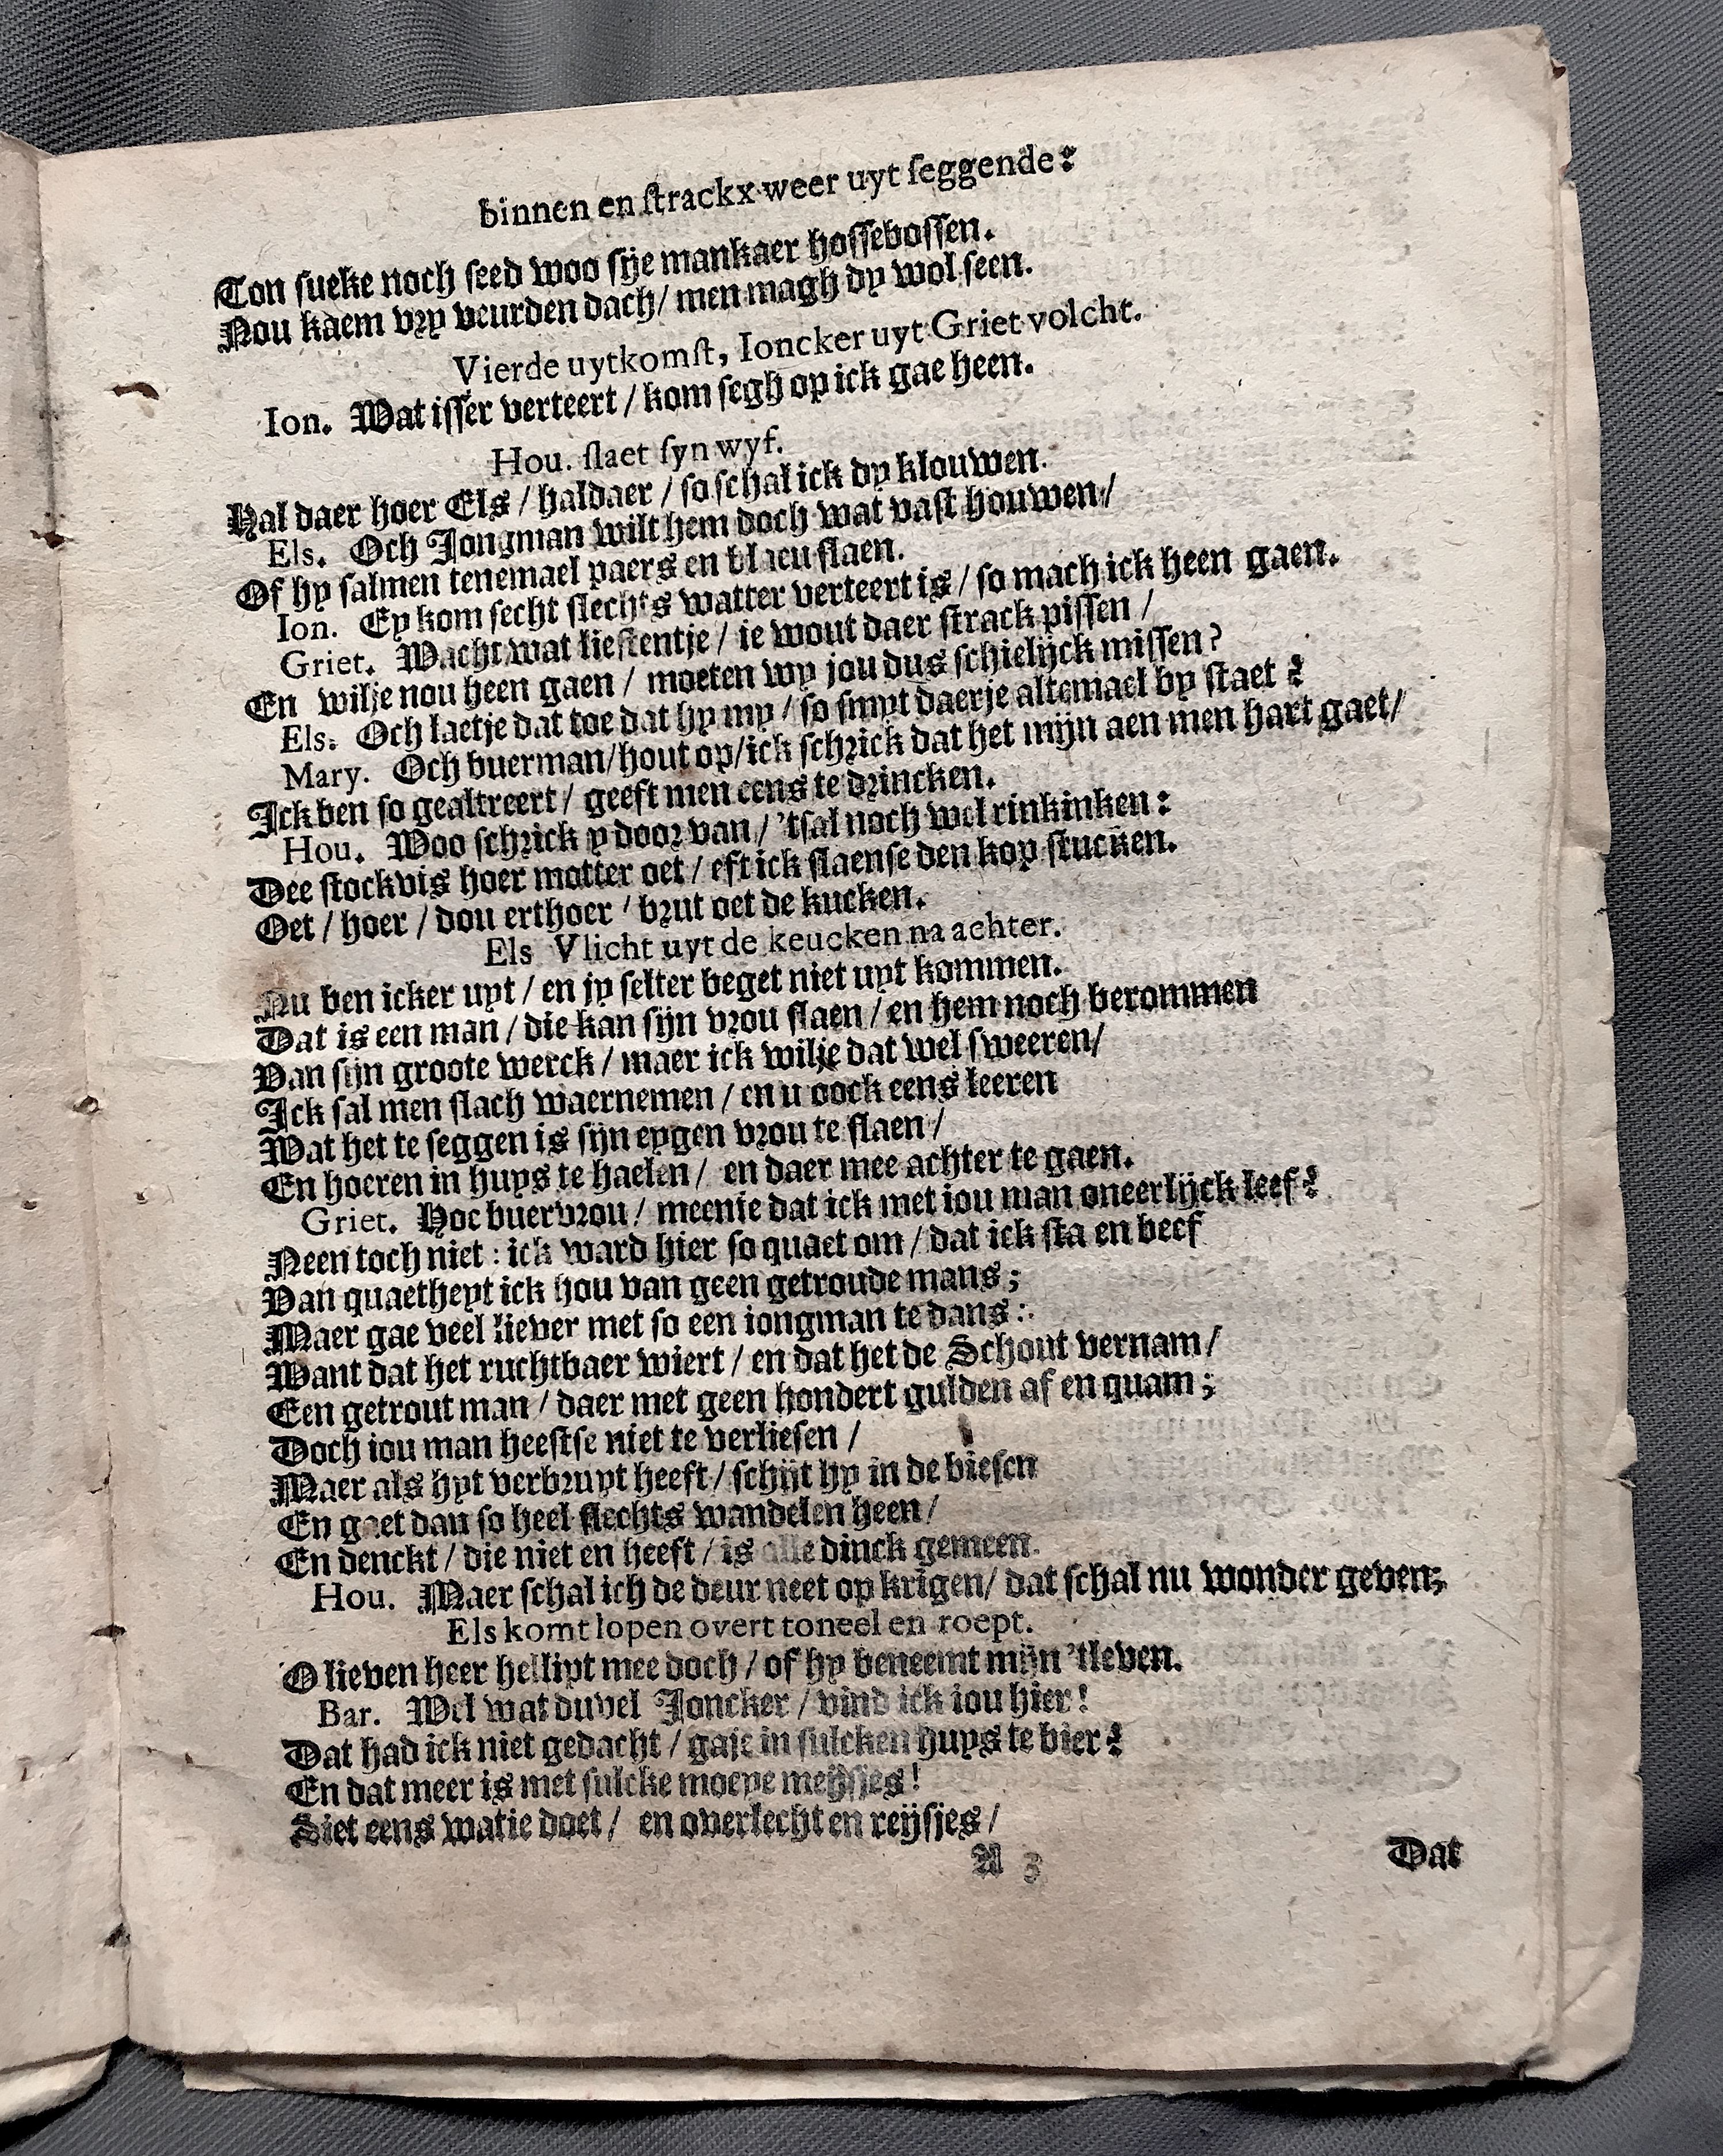 binnen en strackx weer uyt seggende:
Ton sueke noch seed woo sije mankaer hossebossen.
Nou kaem vry veurden dach/ men magh dy wol seen.
Vierde uytkomst, Ioncker uyt Griet volcht.
Ion. Wat isser verteert / kom segh op ick gae heen.
Hou. slaet syn wyf.
Hal daer hoer Els / haldaer / so schal ick dy klouwen.
Els. Och Jongman wilt hem doch wat vast houwen/
Of hy salmen tenemael paers en blaeu slaen.
Ion. Ey kom secht slechts watter verteert is / so mach ick heen gaen.
Griet. Wacht wat liestentje / ie wout daer strack pissen /
En wilje nou heen gaen / moeten wy jou dus schielijck missen?
Els. Och laetje dat toe dat hy my / so smyt daerje altemael by staet?
Mary. Och buerman/hout op/ick schrick dat het mijn aen men hart gaet/
Ick ben so gealtreert / geeft men eens te drincken.
Hou. Woo schrick y door van / 'tsal noch wel rinkinken:
Dee stockvis hoer motter oet / eft ick slaense den kop stucken.
Oet / hoer / dou erthoer / brut oet de kucken.
Els Vlicht uyt de keucken na achter.
Nu ben icker uyt / en jy selter beget niet uyt kommen.
Dat is een man / die kan sijn vrou slaen / en hem noch berommen
Van sijn groote werck / maer ick wilje dat wel sweeren/
Ick sal men slach waernemen / en u oock eens leeren
Wat het te seggen is sijn eygen vrou te slaen /
En hoeren in huys te haelen / en daer mee achter te gaen.
Griet. Hoe buervrou / meenje dat ick met iou man oneerlijck leef?
Neen toch niet : ick ward hier so quaet om / dat ick sta en beef
Van quaetheyt ick hou van geen getroude mans ;
Maer gae veel liever met so een iongman te dans :
Want dat het ruchtbaer wiert / en dat het de Schout vernam /
Een getrout man / daer met geen hondert gulden af en quam ;
Doch iou man heeftse niet te verliesen /
Maer als hyt verbruyt heeft / schijt hy in de biesen
En gaet dan so heel slechts wandelen heen /
En denckt / die niet en heeft / is alle dinck gemeen.
Hou. Maer schal ich de deur neet op krigen/ dat schal nu wonder geven;
Els komt lopen overt toneel en roept.
O lieven heer hellipt mee doch / of hy beneemt mijn 'tleven.
Bar. Wel wat duvel Joncker / vind ick iou hier!
Dat had ick niet gedacht / gaje in sulcken huys te bier?
En dat meer is met sulcke moeye meijsjes!
Siet eens watie doet / en overlecht en reijsjes /
A 3
Dat